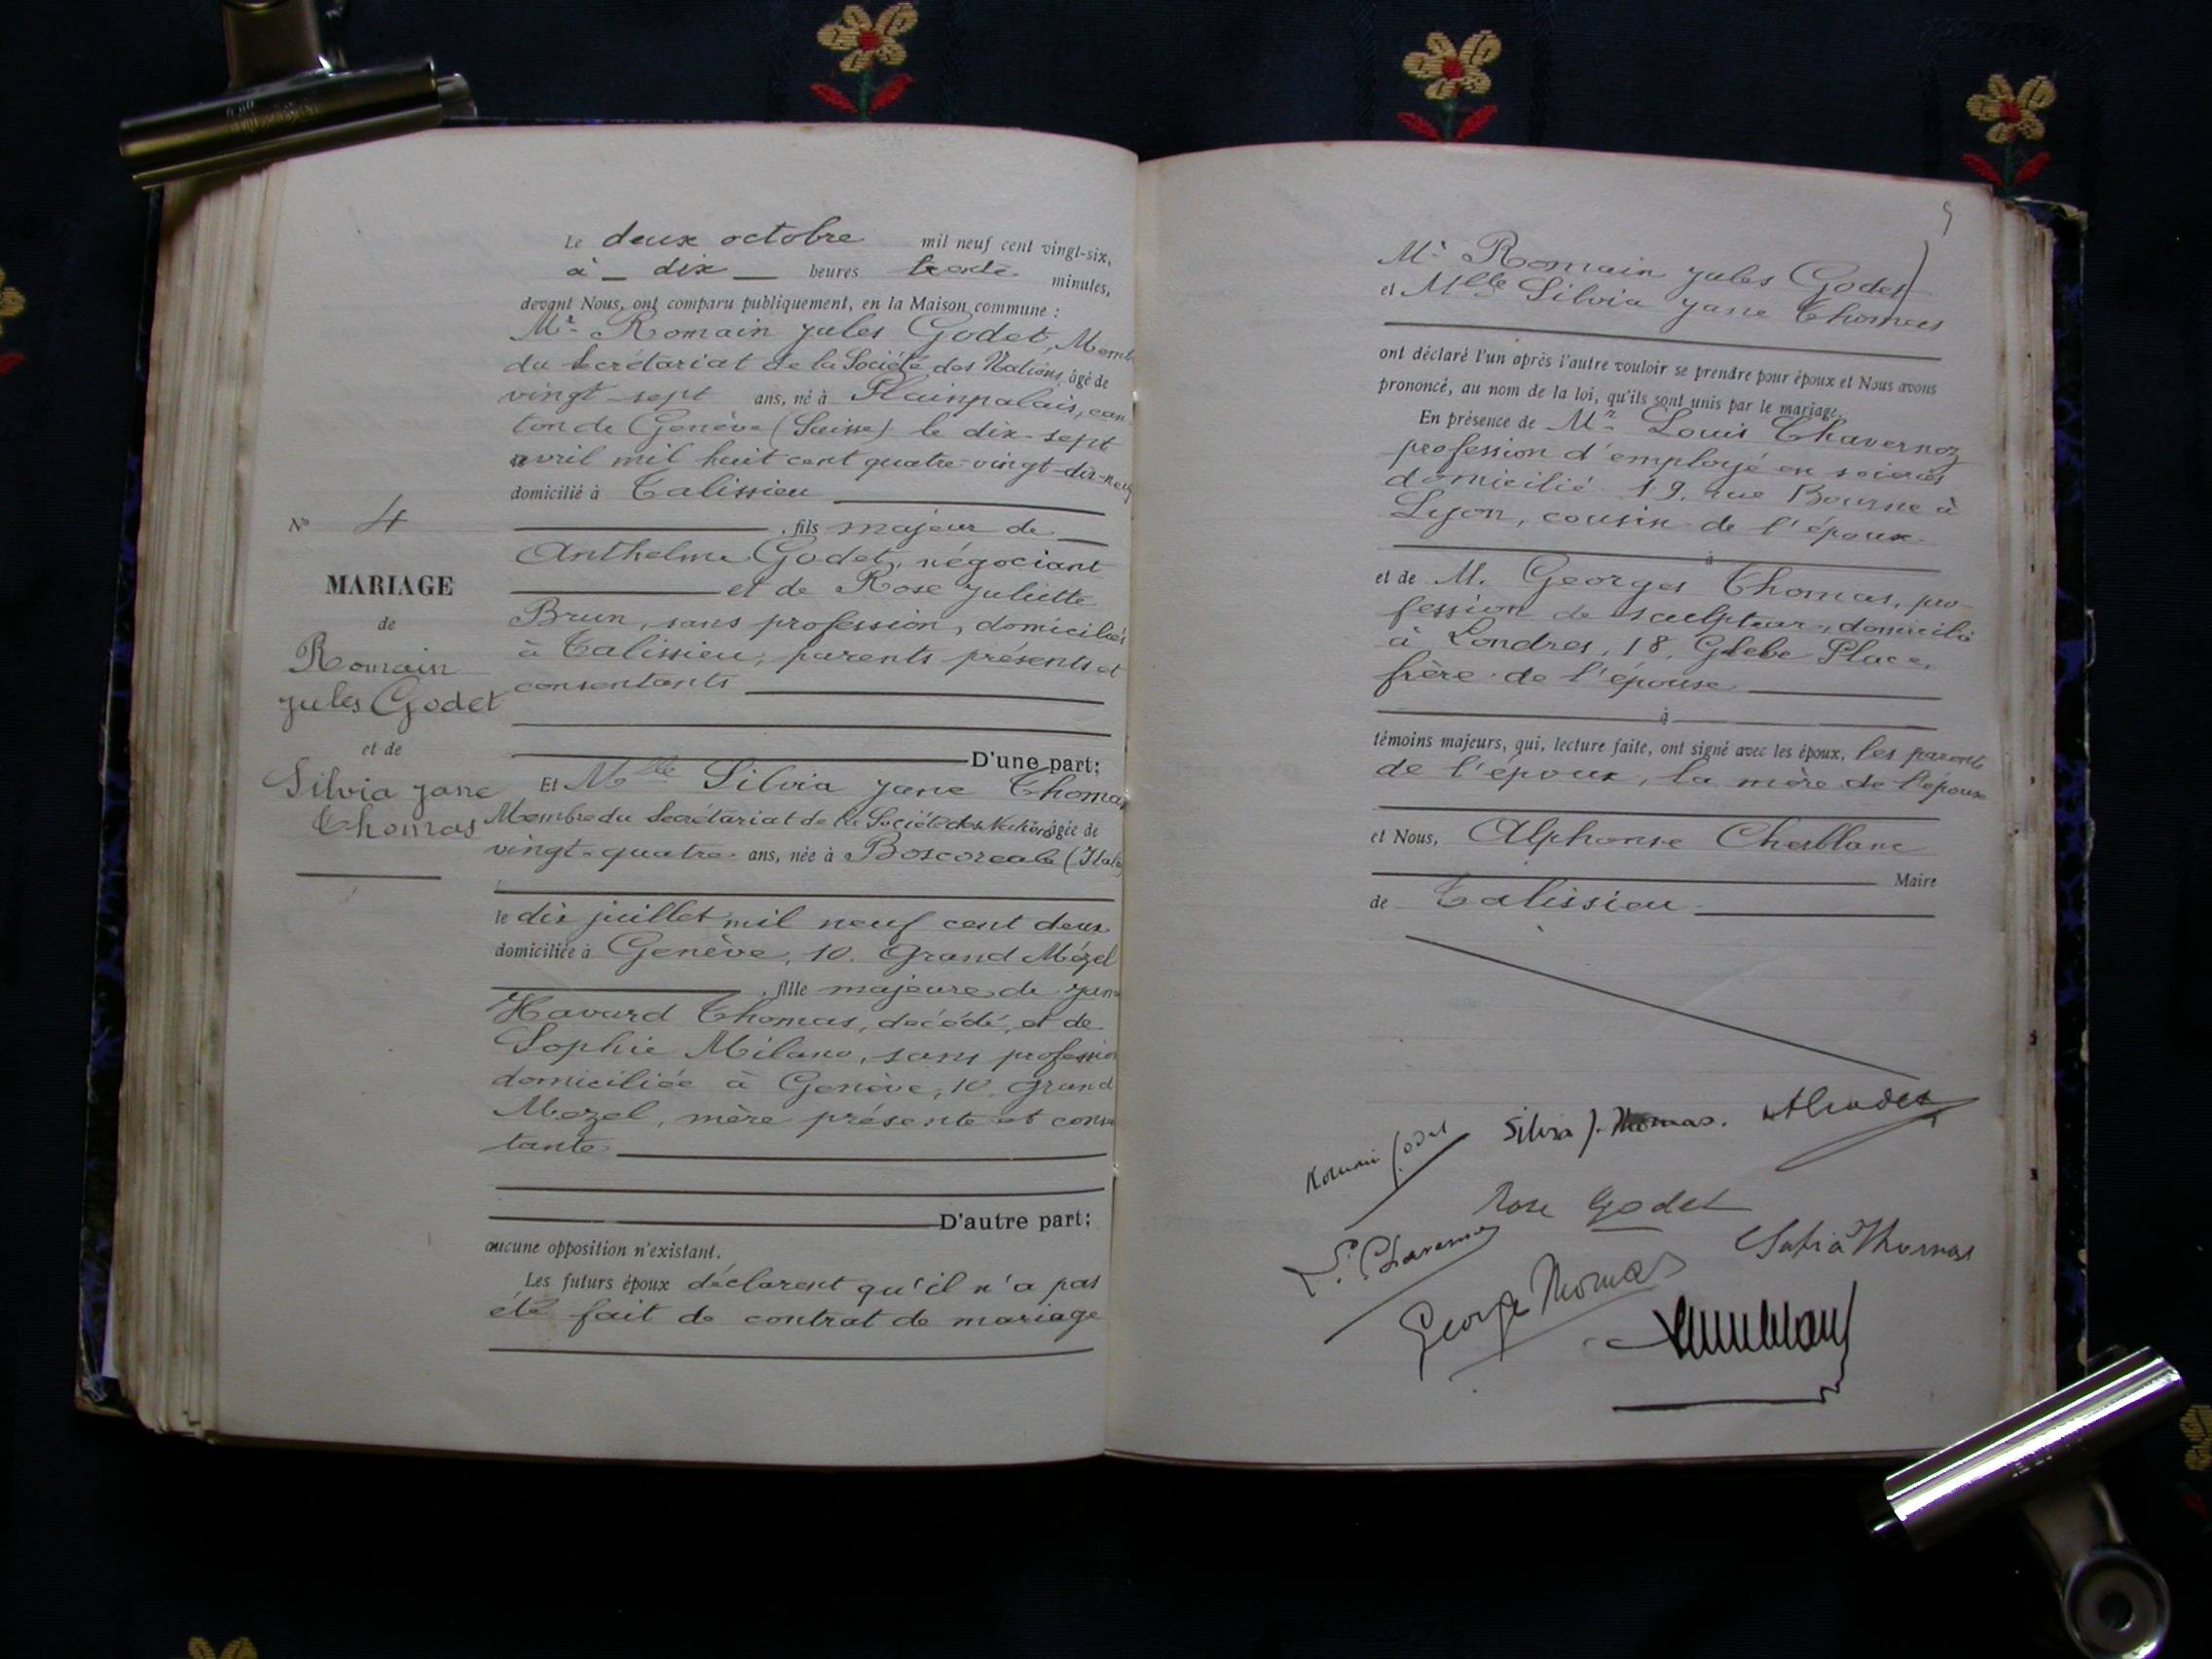 Le deux octobre mil neuf cent vingt-six,
à dix heures trente minutes,
devant Nous, ont comparu publiquement, en la Maison commune :
Mr Romain Jules Godet, Memb
du Secrétariat de la Société des Nations, âgé de
vingt-sept ans, né à Plainpalais, can
ton de Genève (Suisse) le dix-sept
avril mil huit cent quatre-vingt-dix-neuf
domicilié à Talissieu
, fils majeur de
Anthelme Godet, négociant
et de Rose Juliette
Brun, sans profession, domiciliés
à Talissieu, parents présents et
consentants
D'une part;
Et Mlle Silvia Jane Thomas
Membre du Secrétariat de la Société des Nations âgée de
vingt-quatre ans, née à Boscoreale (Itale
le dix juillet mil neuf cent deux
domiciliée à Genève, 10. Grand Mézel
, fille majeure de
Havard Thomas, décédé, et de
Sophie Milano, sans profession
domiciliée à Genève, 10. Grand
Mezel, mère présente et consen
tante
D'autre part;
aucune opposition n'existant.
Les futurs époux déclarent qu'il n'a pas
été fait de contrat de mariage
No 4
MARIAGE
de
Romain
Jules Godet
et de
Silvia Jane
Thomas
Mr Romain Jules Godet
et Mlle Silvia Jane Thomas
ont déclaré l'un après l'autre vouloir se prendre pour époux et Nous avons
prononcé, au nom de la loi, qu'ils sont unis par le mariage.
En présence de Mr Louis Chavernoz
profession d'employé en soieries
domicilié 19, rue Bourne à
Lyon, cousin de l'époux
à
et de M. Georges Thomas, pro-
fession de sculpteur, domicilié
à Londres, 18, Glebe Place,
frère de l'épouse
à
témoins majeurs, qui, lecture faite, ont signé avec les époux, les parents
de l'époux, la mère de l'épouse
et Nous, Alphonse Cherblanc
Maire
de Talissieu
Romain Godet
Silvia J. Thomas.
A Godet
Rose Godet
L. Chavernoz
Sofia Thomas
George Thomas